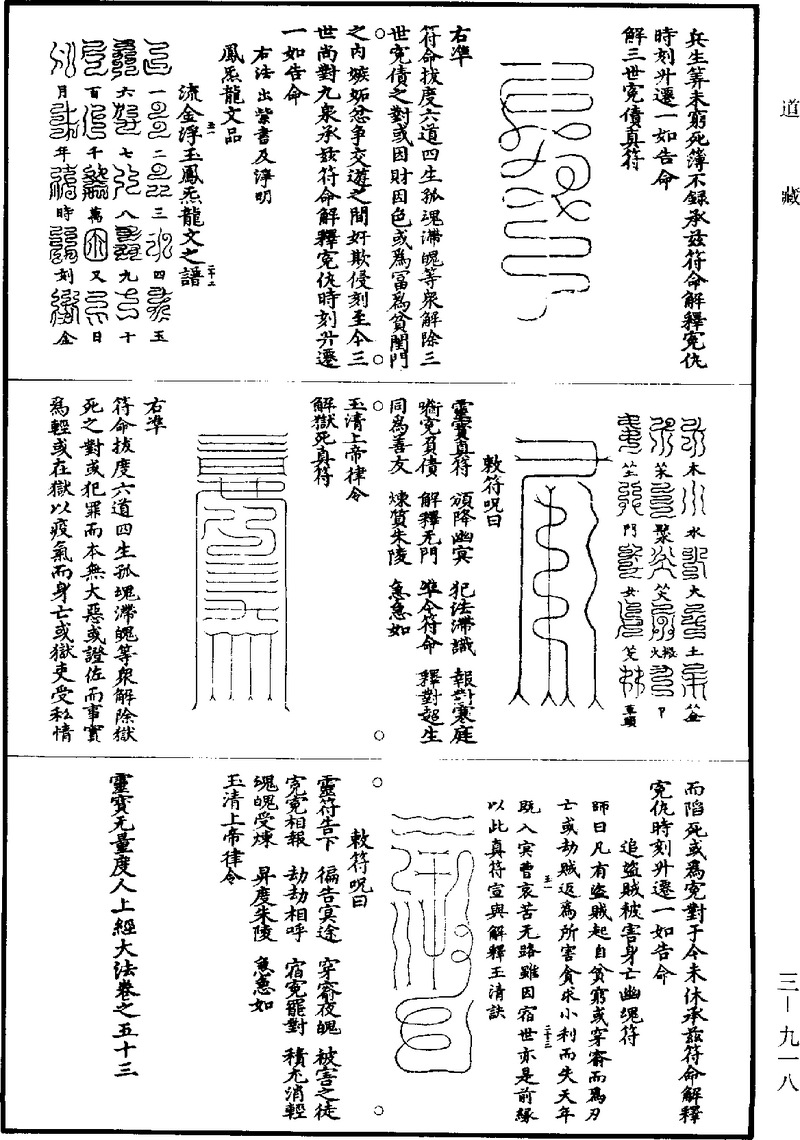 道藏
兵生筭未窮死簿不錄承茲符命解釋寃仇
時刻升遷一如告命
解三世寃債真符
右準
符命拔度六道四生孤魂滯魄等衆解除三
世寃債之對或因財因色或為冨為貧閨門
之內嫉妬忿争交遊之間奸欺侵刻至今三
世尚對九泉承茲符命解釋寃仇時刻升遷
一如告命
右法出紫書及浄明
鳳炁龍文品
流金浮玉鳳炁龍文之譜
一二三四五
六七八九十
百千萬又日
月年時刻金
木水火土
菜聚笑
門女笑草頭
敕符呪曰
靈寶真符 頒降幽冥 犯法滯識 報對寒庭
喻寃負債 解釋无門 準今符命 釋對超生
同為善友 煉質朱陵 急急如
玉清上帝律令
解獄死真符
右準
符命拔度六道四生孤魂滯魄等衆解除獄
死之對或犯罪而本無大惡或證佐而事實
為輕或在獄以疫氣而身亡或獄吏受私情
而陷死或為寃對于今未休承茲符命解釋
寃仇時刻升遷一如告命
追盜賊被害身亡幽魂符
師曰凡有盜賊起自貧窮或穿窬而為刃
亡或劫賊返為所害貪求小利而失天年
既入㝠曹哀苦无路雖因宿世亦是前緣
以此真符宣與解釋玉清訣
敕符呪曰
靈符告下 徧告冥途 穿窬夜魄 被害之徒
寃寃相報 劫劫相呼 宿寃罷對 積尤消輕
魂魄受煉 昇度朱陵 急急如
玉清上帝律令
靈寶无量度人上經大法卷之五十三
三—九一八